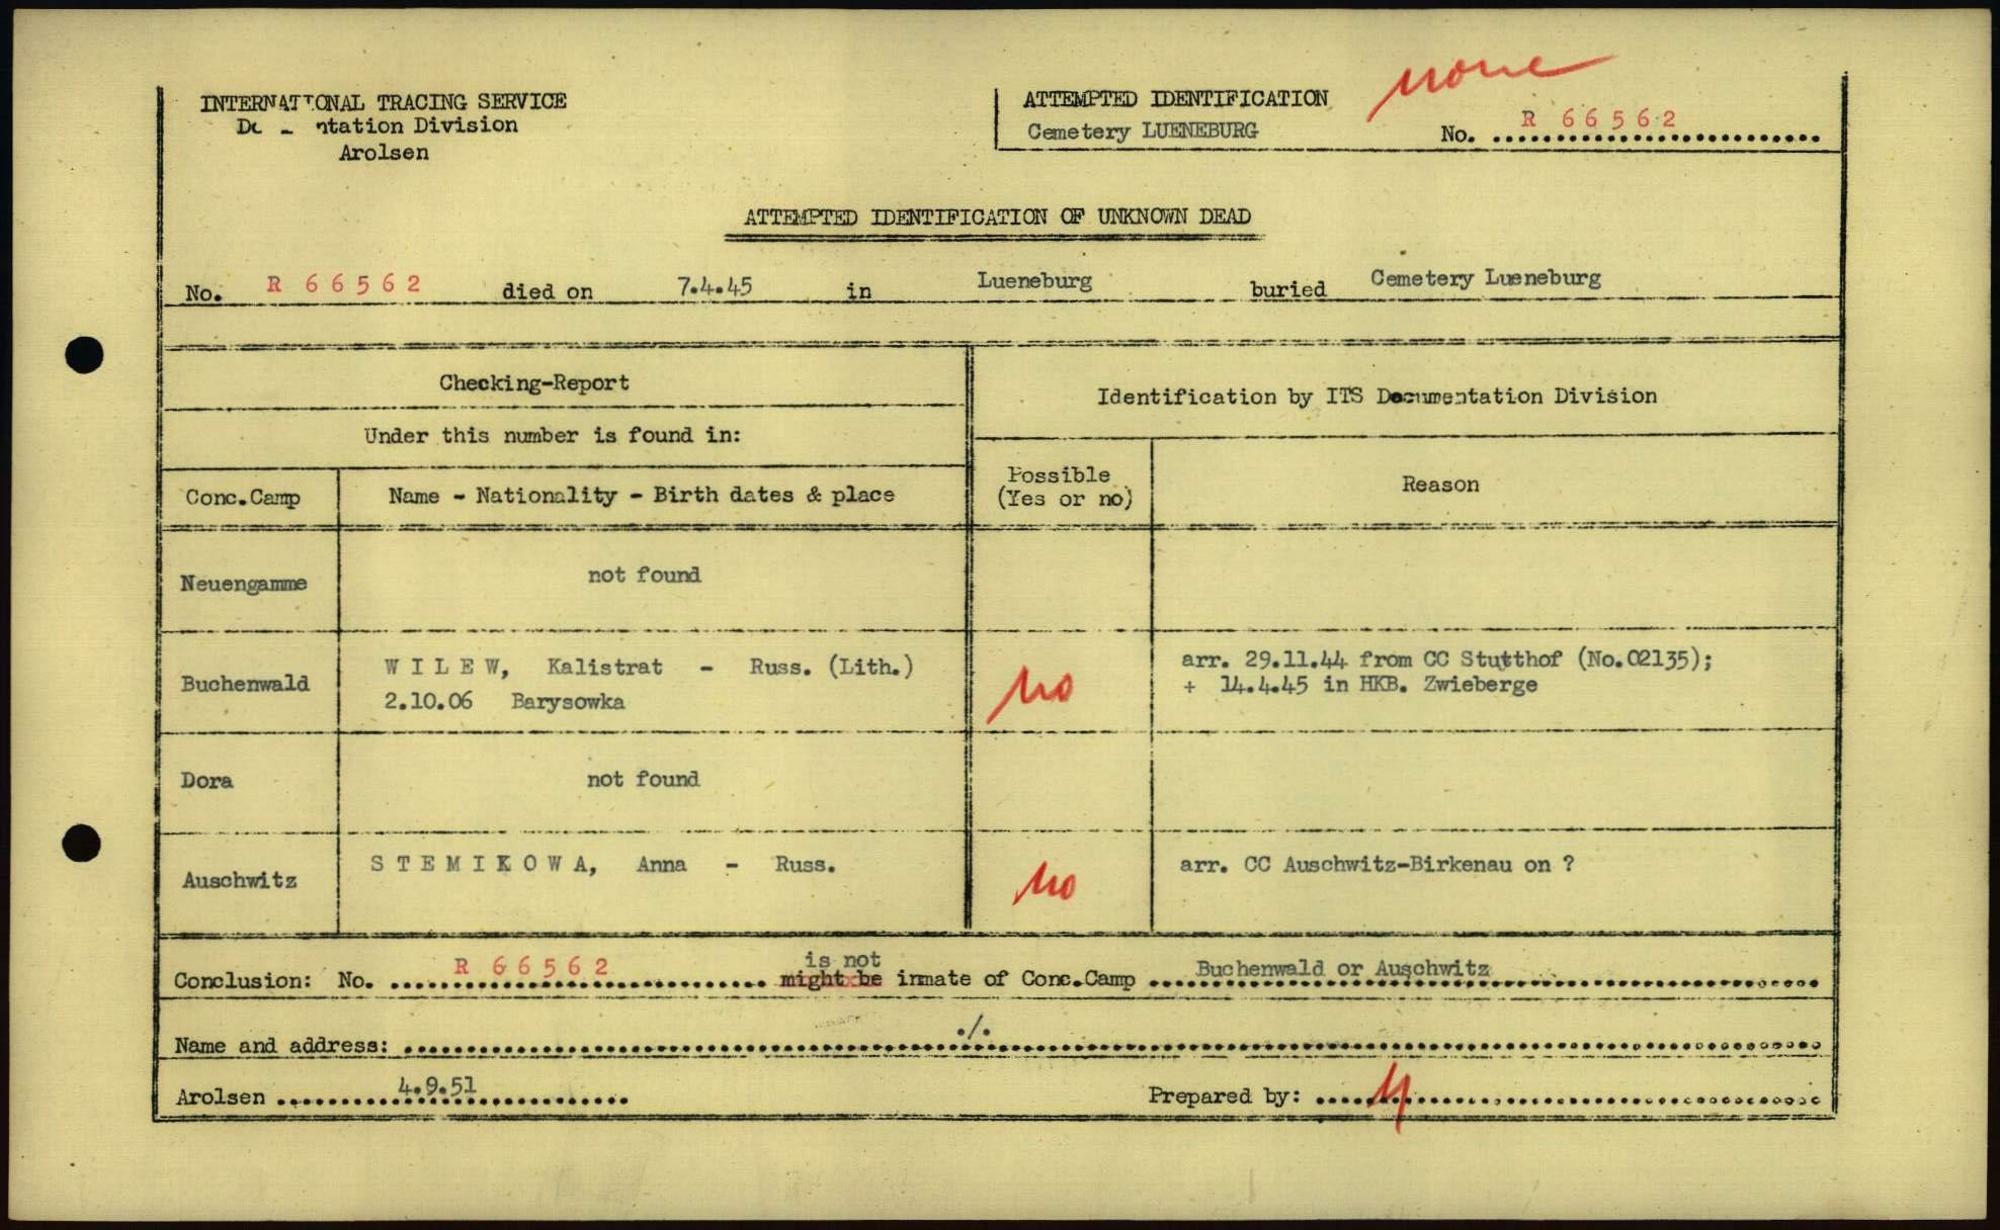 INTERNATIONAL TRACING SERVICE
Division
Arolsen
none
ATTEMPTED IDENTIFICATION
Cemetery LUENEBURG
No. R 66562
ATTEMPTED IDENTIFICATION OF UNKNOWN DEAD
No. R 66562 died on 7.4.45 in Lueneburg buried Cemetery Lueneburg
Checking-Report
Under this number is found in:
Identification by ITS Documentation Division
Conc.Camp Name - Nationality - Birth dates & place
Possible
(Yes or no)
Reason
Neuengamme not found
Buchenwald
WILEW, Kalistrat - Russ. (Lith.)
2.10.06 Barysowka
no
arr. 29.11.44 from CC Stutthof (No.02135);
+ 14.4.45 in HKB. Zwieberge
Dora not found
Auschwitz
STEMIKOWA, Anna - Russ.
no
arr. CC Auschwitz-Birkenau on ?
is not
Conclusion: No. R 66562 might be inmate of Conc.Camp Buchenwald or Auschwitz
Name and address: ./.
Arolsen 4.9.51 Prepared by: